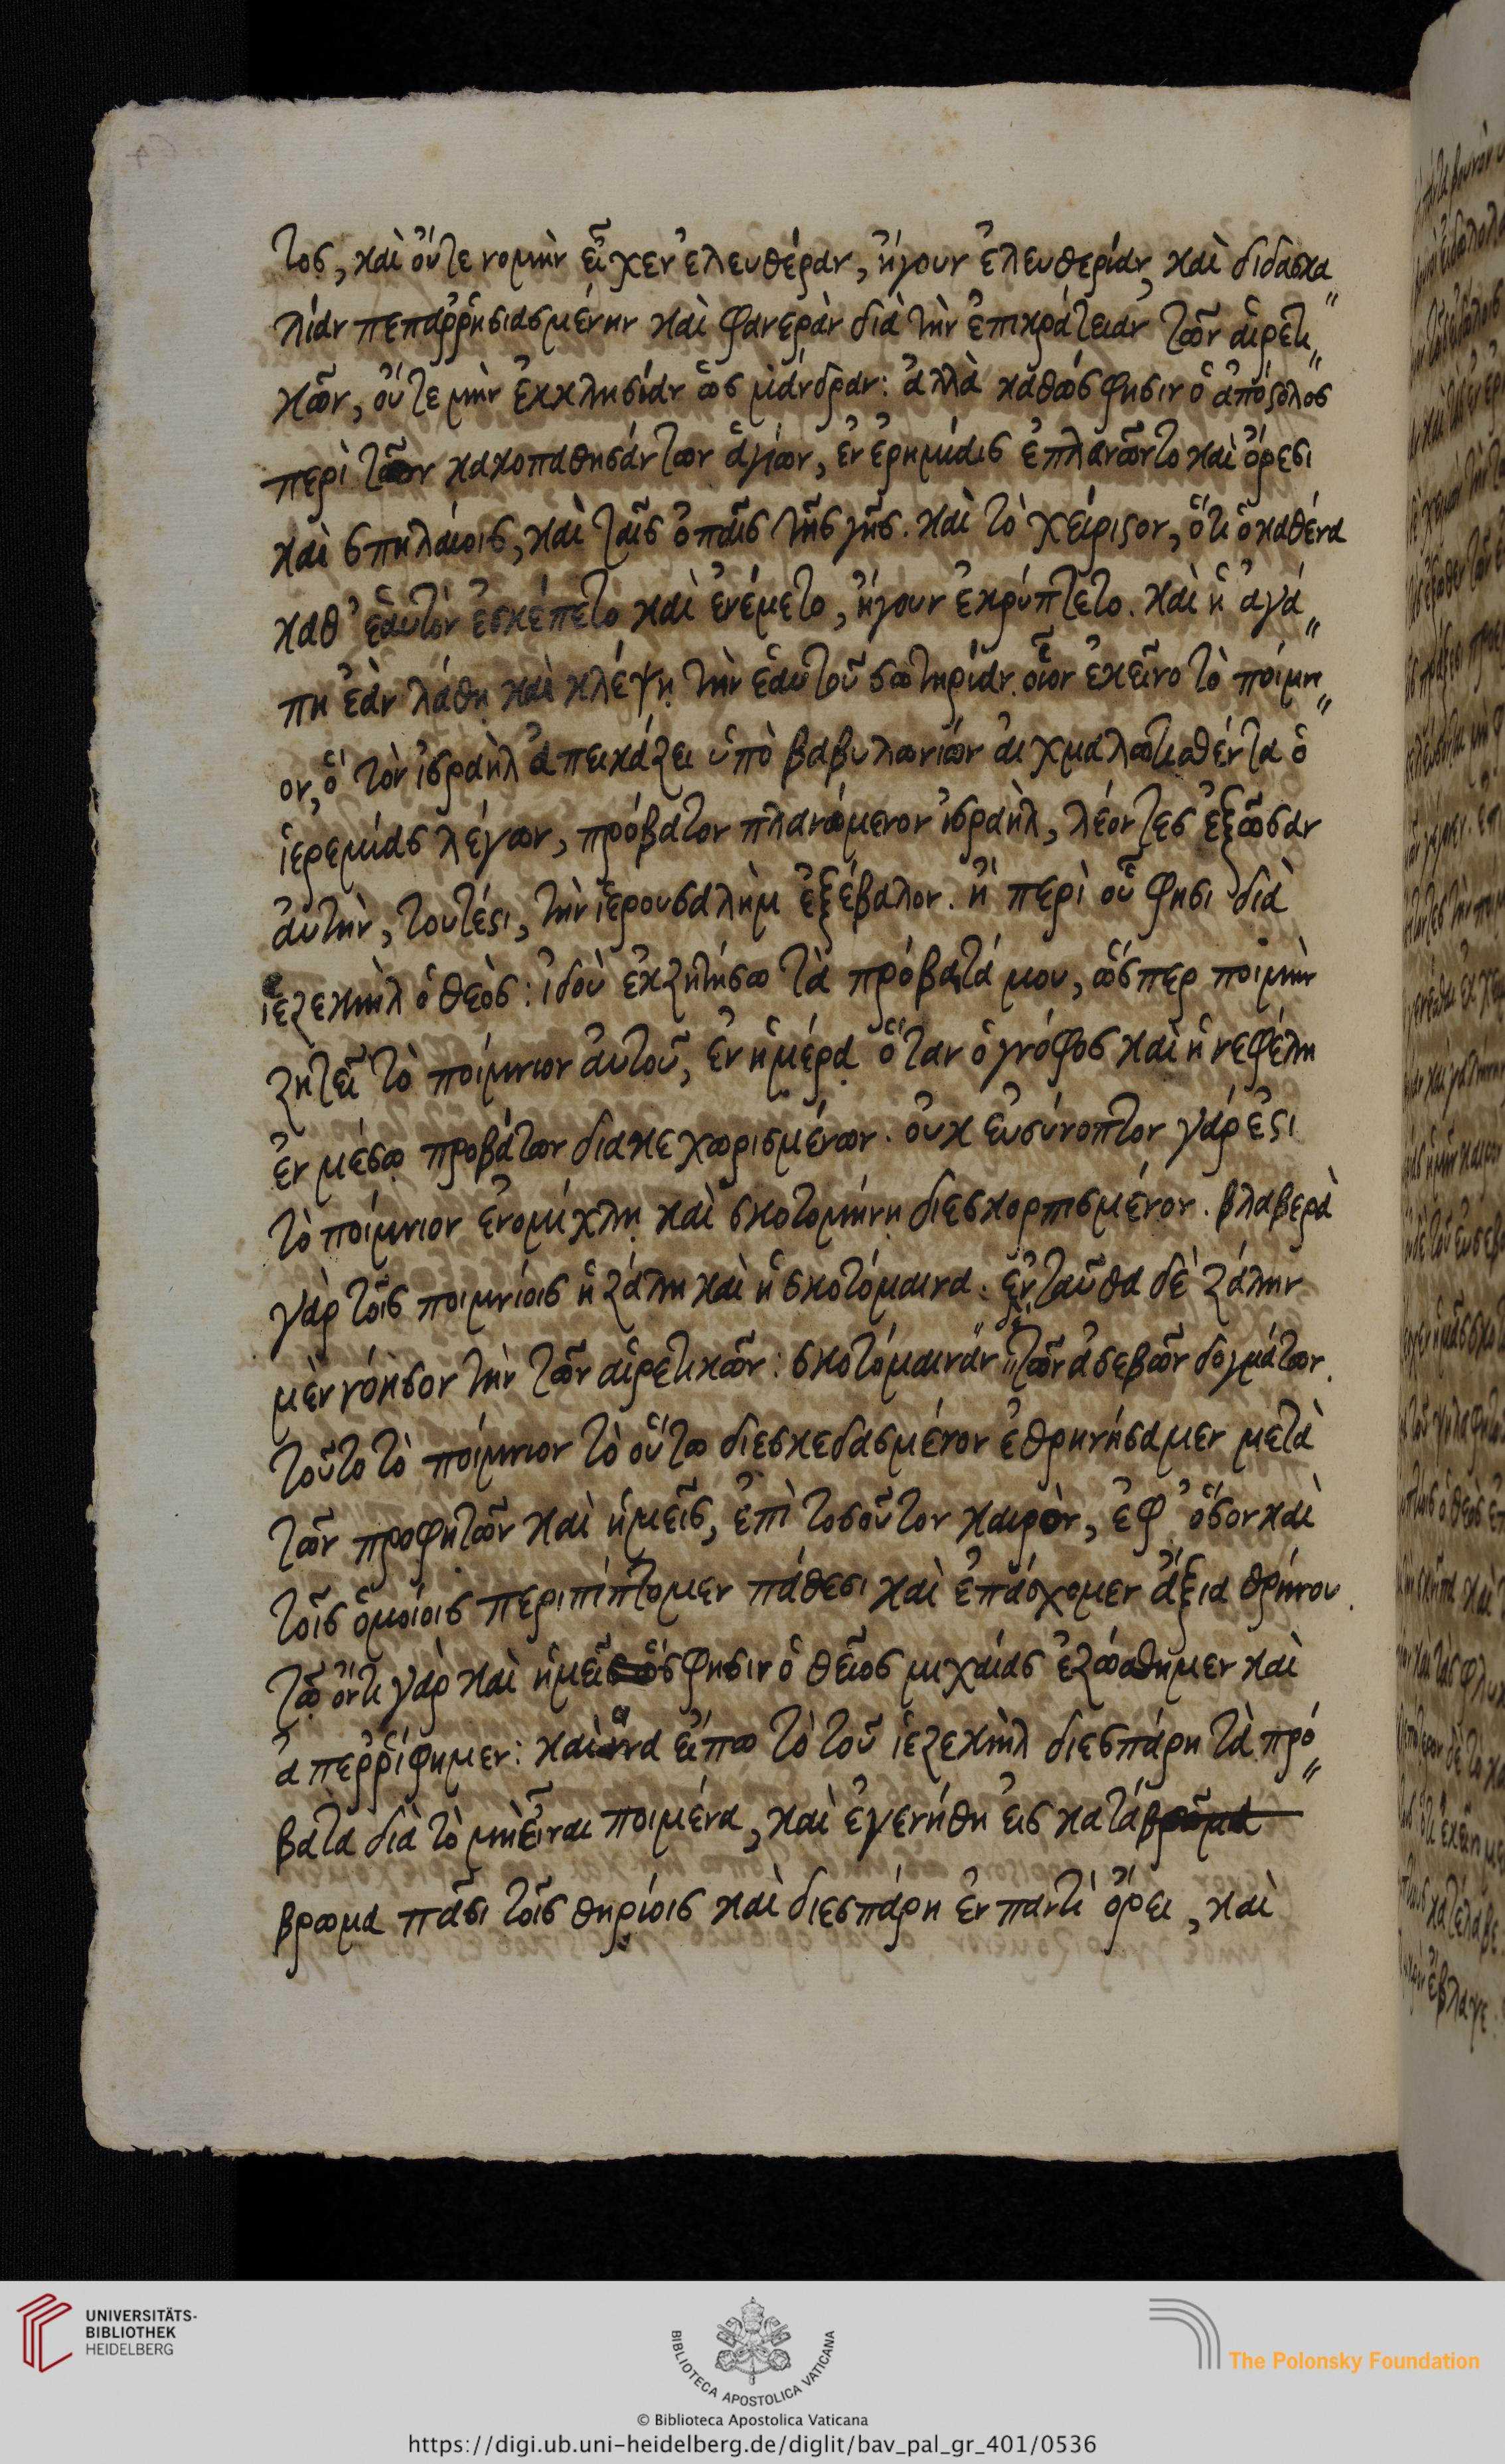 τος, καὶ οὔτε νομὴν εἶχεν ἐλευθέραν, ἤγουν ἐλευθερίαν, καὶ διδασκα〃
λίαν πεπαῤῥησιασμένην καὶ φανερὰν διὰ τὴν ἐπικράτειαν τῶν αἱρετι〃
κῶν, οὔτε μὴν ἐκκλησίαν ὡς μάνδραν: ἀλλὰ καθώς φησιν ὁ ἀπόστολος
περὶ τῶν κακοπαθησάντων ἁγίων, ἐν ἐρημίαις ἐπλανῶντο καὶ ὄρεσι
καὶ σπηλαίοις, καὶ ταῖς ὀπαῖς τῆς γῆς. καὶ τὸ χείριστον, ὅτι ὁ καθένα
καθ' ἑαυτὸν ἐσκέπετο καὶ ἐνέμετο, ἤγουν ἐκρύπτετο. καὶ ἡ ἀγά〃
πη ἐὰν λάθῃ καὶ κλέψῃ τὴν ἑαυτοῦ σωτηρίαν. οἷον ἐκεῖνο τὸ ποίμνι〃
ον, ὃ τὸν ἰσραὴλ ἀπεικάζει ὑπὸ βαβυλωνίων αἰχμαλωτισθέντα ὁ
ἱερεμίας λέγων, πρόβατον πλανώμενον ἰσραὴλ, λέοντες ἐξῶσαν
αὐτὴν, τουτέστι, τὴν ἱερουσαλὴμ ἐξέβαλον. ἢ περὶ οὗ φησι διὰ
ἰεζεκιὴλ ὁ θεὸς: ἰδοὺ ἐκζητήσω τὰ πρόβατά μου, ὥσπερ ποιμὴν
ζητεῖ τὸ ποίμνιον αὐτοῦ, ἐν ἡμέρᾳ ὅταν ὁ γνόφος καὶ ἡ νεφέλη
ἐν μέσῳ προβάτων διακεχωρισμένων. οὐκ εὐσύνοπτον γάρ ἐστι
τὸ ποίμνιον ἐν ὀμίχλῃ καὶ σκοτομήνῃ διεσκορπισμένον. βλαβερὰ
γὰρ τοῖς ποιμνίοις ἡ ζάλη καὶ ἡ σκοτόμαινα. ἐνταῦθα δὲ ζάλην
μὲν νόησον τὴν τῶν αἱρετικῶν: σκοτόμαιναν δὲ τῶν ἀσεβῶν δογμάτων.
τοῦτο τὸ ποίμνιον τὸ οὕτω διεσκεδασμένον ἐθρηνήσαμεν μετὰ
τῶν προφητῶν καὶ ἡμεῖς, ἐπὶ τοσοῦτον καιρὸν, ἐφ' ὅσον καὶ
τοῖς ὁμοίοις περιπίπτομεν πάθεσι καὶ ἐπάσχομεν ἄξια θρήνου.
τῷ ὄντι γὰρ καὶ ἡμεῖς ὥς φησιν ὁ θεῖος μιχαίας ἐξώσθημεν καὶ
ἀπεῤῥίφημεν: καὶ ἵνα εἴπω τὸ τοῦ ἰεζεκιὴλ διεσπάρη τὰ πρό〃
βατα διὰ τὸ μὴ εἶναι ποιμένα, καὶ ἐγενήθη εἰς κατάβρωμα
βρωμα πᾶσι τοῖς θηρίοις καὶ διεσπάρη ἐν παντὶ ὄρει, καὶ
UNIVERSITÄTS-
BIBLIOTHEK
HEIDELBERG
BIBLIOTECA APOSTOLICA VATICANA
The Polonsky Foundation
© Biblioteca Apostolica Vaticana
https://digi.ub.uni-heidelberg.de/diglit/bav_pal_gr_401/0536